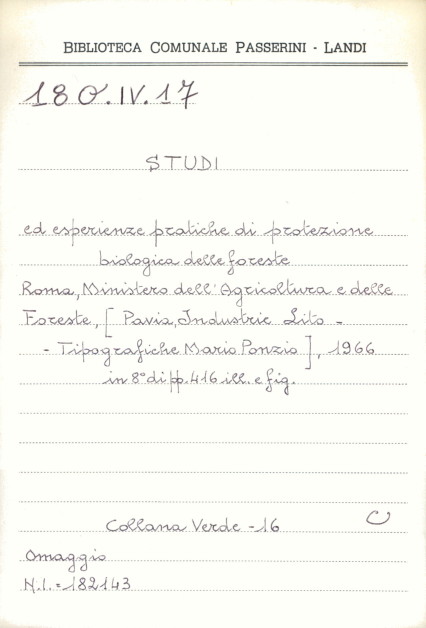 BIBLIOTECA COMUNALE PASSERINI - LANDI
180.IV.17
STUDI
ed esperienze pratiche di protezione
biologica delle foreste
Roma, Ministero dell'Agricoltura e delle
Foreste, [ Pavia, Industrie Lito -
- Tipografiche Mario Ponzio ], 1966
in 8° di pp. 416 ill. e fig.
Collana Verde - 16
C
Omaggio
N.I. = 182143